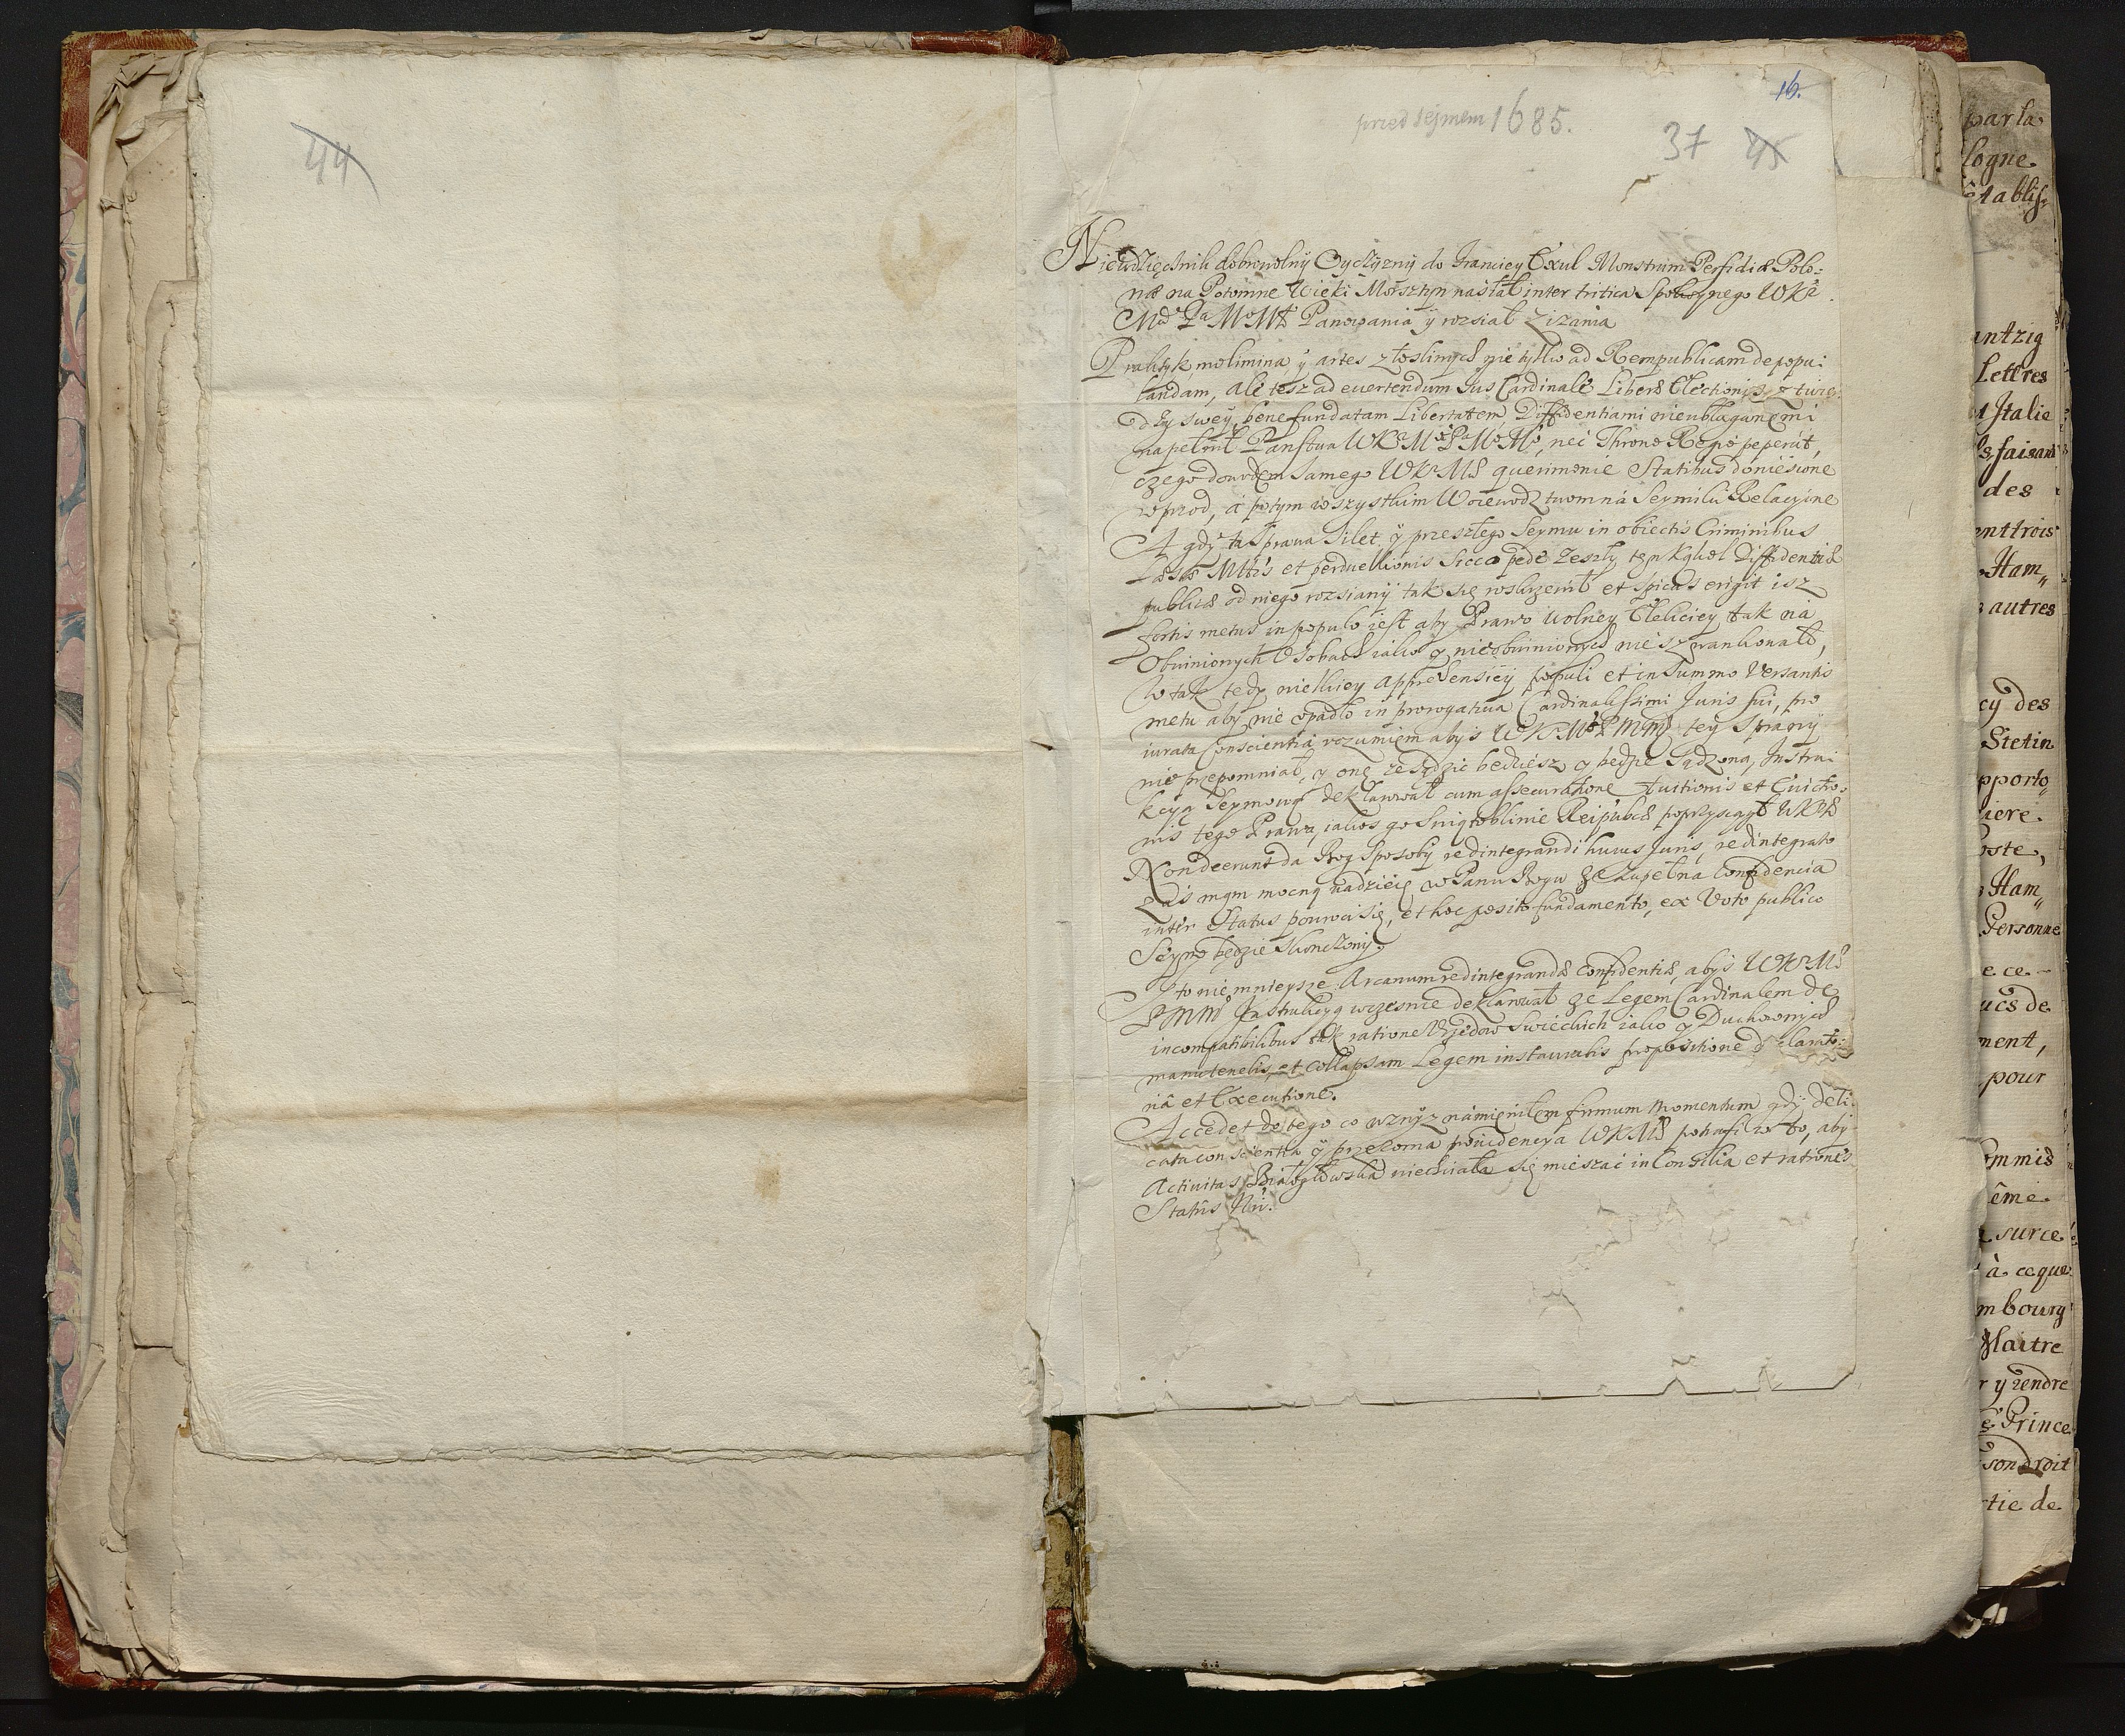 44
16.
przed sejmem 1685.
37 45
Niewdzięcznik dobrowolny Oyczyzny do Franciey Exul Monstrum Perfidiæ Polo:
næ na Potomne Wieki Morsztyn nasłał inter tritica Spokoynego WKr
Mći Pa Mo Mł Panowania ÿ rozsiał Zizania
Praktyk molimina ÿ artes złosliwych nie tylko ad Rempublicam depopu:
landam, ale tesz ad evertendum Jus Cardinale Liberæ Electionis, z twier:
dzy swey, bene fundatam Libertatem, Diffidentiami nieubłaganemi
napełnił Panstwa WKr Mći Pa Mo Mo, nec Throno Regio peperit,
czego dowodem samego WKrMći querimonie Statibus doniesione
wprzod, á potym wszystkim Woiewodztwom ná Seymiki Relacyine
A gdy ta sprawa Silet ÿ przeszłego Seymu in obiectis Criminibus
Læsæ Mttis et perduellionis Sicco pede zeszły, ten Kąkol Diffidentiæ
publicæ od niego rozsiany tak się wskrzewił et spicas erigit isz
fortis metus in populo iest aby Prawo wolney Elekciey tak na
Obwinionych Osobach iako y nieobwinionych nie szwankowało,
W tak tedy wielkiey apprehensiey populi et in summo versantis
metu aby nie wpadło in prorogativa Cardinalissimi Juris sui, pro
iurata Conscientia rozumiem abys WKrMć P M M tey Sprawy
nie przepomniał, y onę ze sądzic będziesz y będzie sądzona, Instru:
kcyą Seymową deklarował cum assecuratione tuitionis et Evictio:
nis tego Prawa, iakos go Swiątoblinie Reipubcæ poprzysiągł WKrMć
Non deerunt da Bog Sposoby redintegrandi huius Juris, redintegrato
Zas mąm mocną nadzieię w Panu Bogu ze zupełna Confidencia
inter Status powroci się, et hoc posito fundamento, ex Voto publico
Seym będzie skonczony.
Y to nie mnieysze Arcanum redintegrandæ Confidentiæ, abys WKrMć
P M M Instrukcyą wczesnie deklarował ze Legem Cardinalem de
incompatibilibus tak ratione Urzędow swieckich iako y Duchownych
manutenebis, et Collapsam Legem instaurabis propositione declarato:
riâ et Executione.
Accedet do tego co wzwyz námieniłem firmum momentum gdy deli:
cata conscientia ÿ przezorna prowidencya WKMć potrafi w to, aby
Activitas Białogłowska niechciała się mieszac in Consilia et rationes
Statûs Nri.
par la
logne
établis:
antzig
Lettres
Italie
faisant
des
ent trois
Ham„
autres
cy des
Stetin
pporto„
iere.
oste,
Ham„
Personne
e ce
ucs de
ment,
pour
ommis
ême
surce
à ce que
mbourg
Maitre
r y rendre
Prince
son droit
tie de